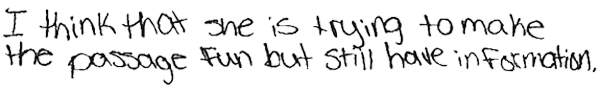 I think that she is trying to make
the passage fun but still have information.